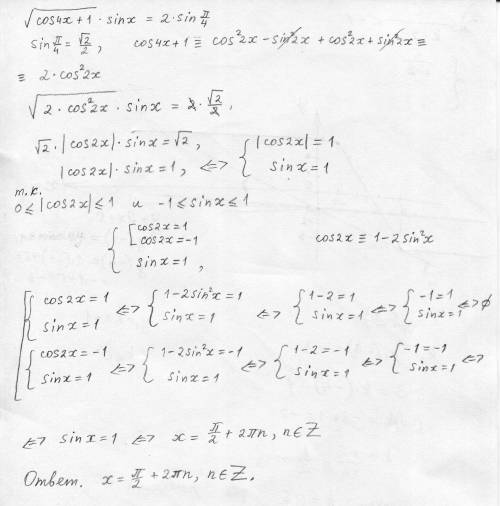 √(cos4x+1) · sinx = 2·sin π/4
sin π/4 = √2/2 , cos4x+1 ≡ cos²2x − sin²2x + cos²2x + sin²2x ≡
≡ 2·cos²2x
√(2·cos²2x) · sinx = 2·√2/2 .
√2·|cos2x|·sinx = √2 , { |cos2x| = 1
|cos2x|·sinx = 1 , <=> { sinx = 1
т.к.
0 ≤ |cos2x| ≤ 1 и -1 ≤ sinx ≤ 1
{ [ cos2x = 1
[ cos2x = -1 cos2x ≡ 1-2sin²x
sinx = 1 ,
[ { cos2x = 1 <=> { 1-2sin²x = 1 <=> { 1-2 = 1 <=> { -1 = 1 <=> ∅
sinx = 1 sinx = 1 sinx = 1 sinx = 1
{ cos2x = -1 <=> { 1-2sin²x = -1 <=> { 1-2 = -1 <=> { -1 = -1 <=>
sinx = 1 sinx = 1 sinx = 1 sinx = 1
<=> sinx = 1 <=> x = π/2 + 2πn, n∈Z
Ответ. x = π/2 + 2πn, n∈Z.